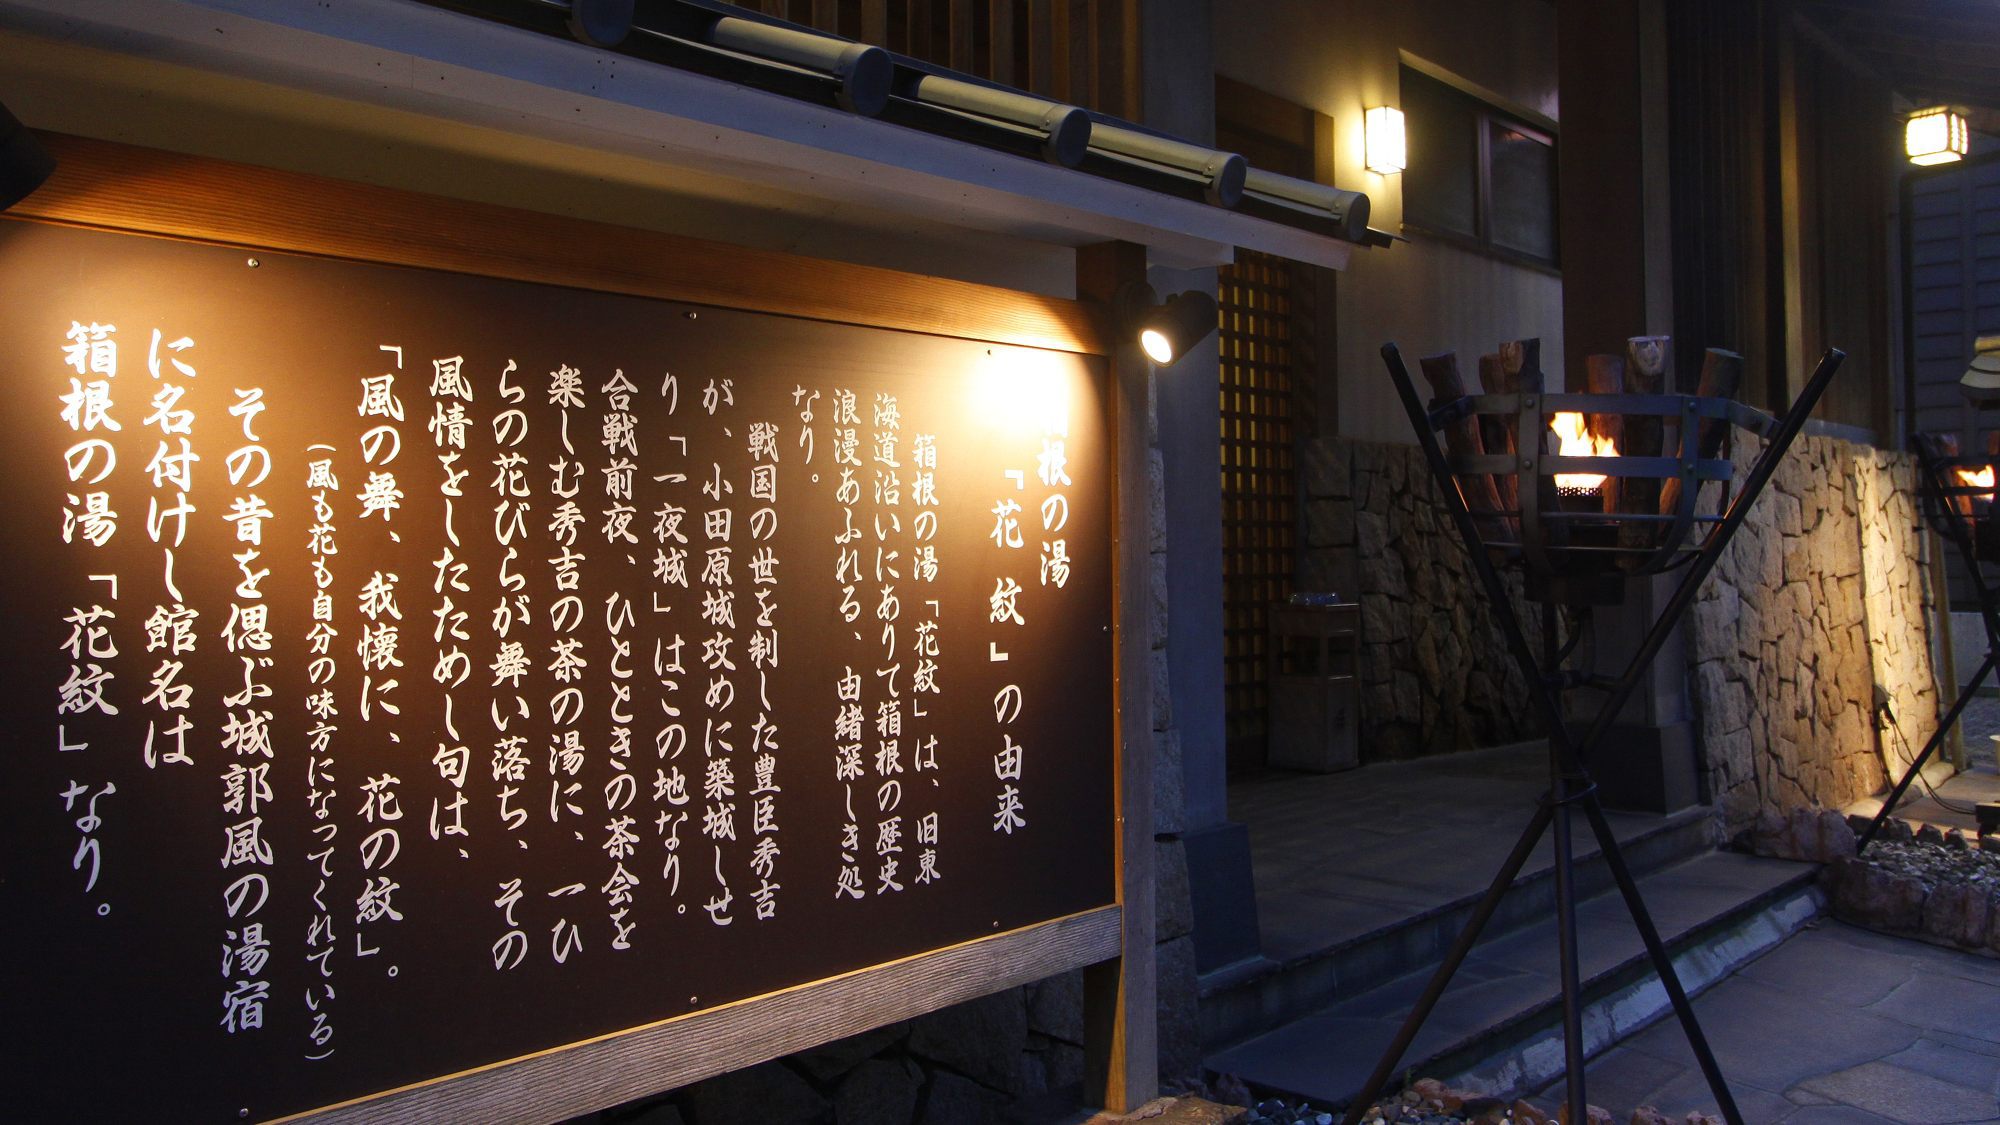 箱根の湯
「花 紋」の由来
箱根の湯「花紋」は、旧東
海道沿いにありて箱根の歴史
浪漫あふれる、由緒深しき処
なり。
戦国の世を制した豊臣秀吉
が、小田原城攻めに築城しせ
り「一夜城」はこの地なり。
合戦前夜、ひとときの茶会を
楽しむ秀吉の茶の湯に、一ひ
らの花びらが舞い落ち、その
風情をしたためし句は、
「風の舞、我懐に、花の紋」。
(風も花も自分の味方になってくれている)
その昔を偲ぶ城郭風の湯宿
に名付けし館名は
箱根の湯「花紋」なり。